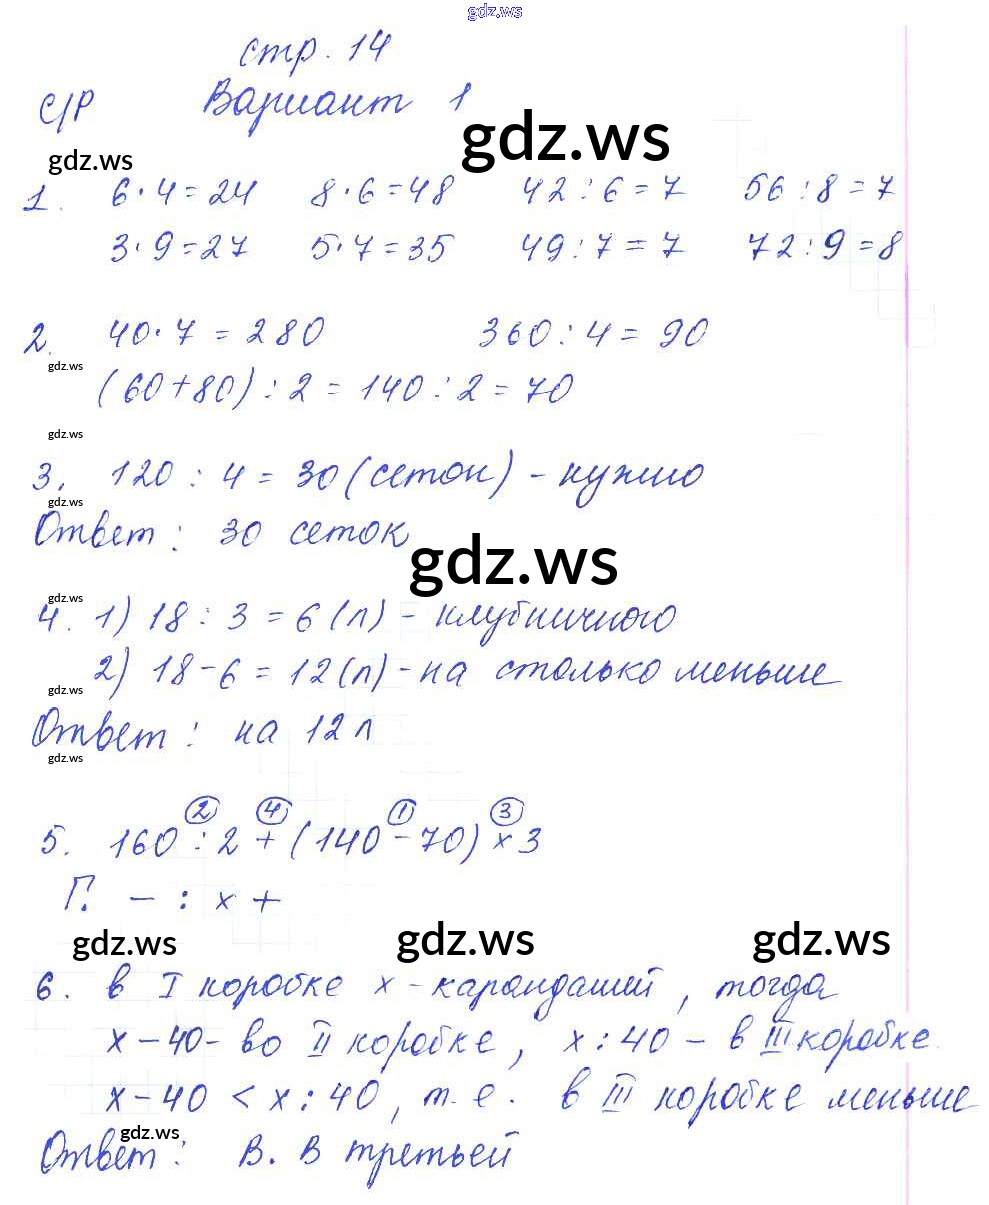 gdz.ws
стр. 14
С/Р Вариант 1
gdz.ws
gdz.ws
1. 6·4=24 8·6=48 42:6=7 56:8=7
3·9=27 5·7=35 49:7=7 72:9=8
2. 40·7=280 360:4=90
gdz.ws
(60+80):2=140:2=70
gdz.ws
3. 120:4=30(сеток) - нужно
gdz.ws
Ответ: 30 сеток
gdz.ws
gdz.ws
4. 1) 18:3=6(л) - клубничного
2) 18-6=12(л) - на столько меньше
gdz.ws
Ответ: на 12 л
gdz.ws
2 4 1 3
5. 160:2+(140-70)×3
Г. - : × +
gdz.ws gdz.ws gdz.ws
6. в I коробке x - карандашей, тогда
x-40 - во II коробке, x:40 - в III коробке.
x-40<x:40, т.е. в III коробке меньше
gdz.ws
Ответ: В. В третьей